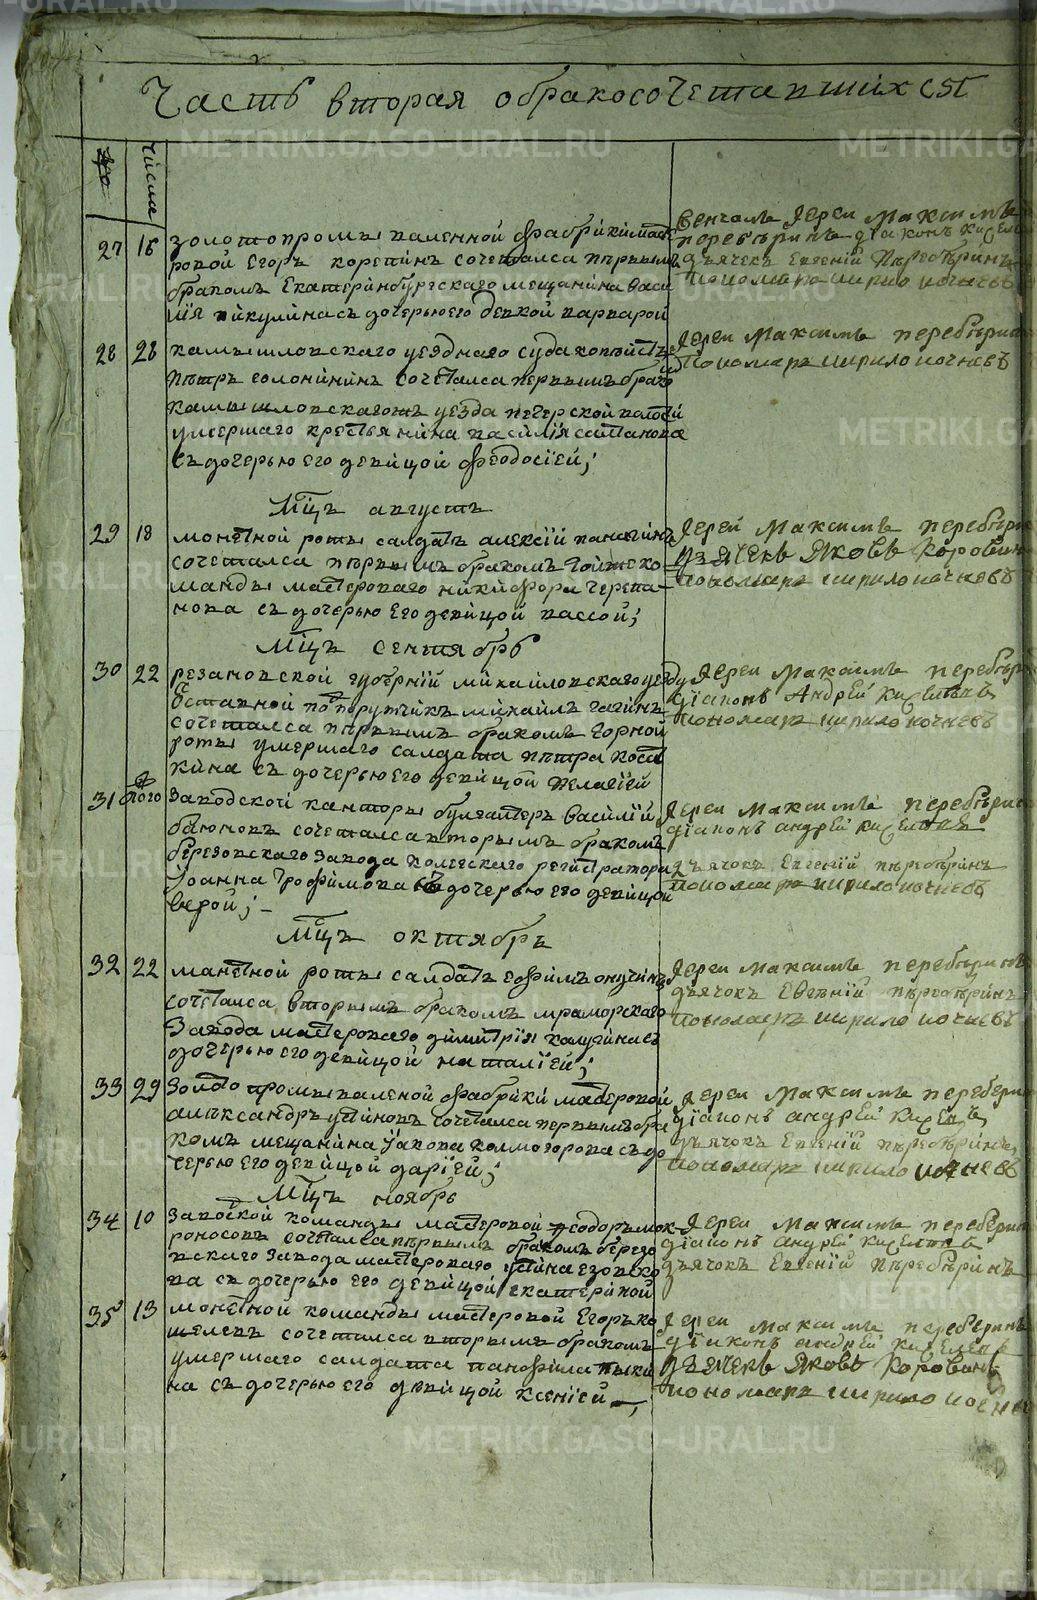 Часть вторая обракосочетавшихся
№
Числа
27 16 золотопромываленной фабрики масте
ровой Егоръ корепинъ сочетался первымъ
бракомъ Екатеринбургскаго мещанина васи
лия пикулина съ дочерью его девкой варварой
Венчалъ Иереи Максимъ
переберинъ диаконъ
дьячекъ Евгений Переберинъ
Пономарь кирило кочневъ
28 28 камышловскаго уезднаго суда копеистъ
петръ солонинин сочетался первымъ брако
камышловскагожъ уезда печерской волости
умершаго крестьянина василия
съ дочерью его девицой феодосіей;
Иереи Максимъ переберинъ
Пономарь кирило кочневъ
Мцъ августъ
29 18 монетной роты салдатъ алексій
сочетался первымъ бракомъ той же ко
манды мастероваго никифора черепа-
нова съ дочерью его девицой вассой;
Иерей Максимъ переберин
Дьячекъ Яковъ Коровин
пономарь кирило кочневъ
Мцъ сентябрь
30 22 резановской губерній михайловскаго уезду
оставной подпорутчикъ михаилъ гагинъ
сочетался первымъ бракомъ горной
роты умершаго салдата петра кост
кина съ дочерью его девицой пелагіей
Иереи Максимъ перебери
діаконъ Андрей
пономарь кирило кочневъ
31 тогож Заводской канторы бухгалтеръ василій
баюновъ сочетался вторымъ бракомъ
березовскаго завода колежскаго регистратора
Іоанна Трофимова съ дочерью его девицой
верой; -
Иереи Максимъ перебери
діаконъ андрей
дьячокъ Евгений переберинъ
пономарь кирило кочневъ
Мцъ октябрь
32 22 манетной роты салдатъ ефимъ
сочетался вторымъ бракомъ мраморскаго
Завода мастероваго димитрія калугина съ
дочерью его девицой наталіей;
Иереи Максимъ переберинъ
дьячокъ Евгений переберинъ
пономарь кирило кочневъ
33 29 Золотопромываленой фабрики мастеровой
александръ устиновъ сочетался первымъ бра
комъ мещанина Іакова колмогорова съ до
черью его девицой даріей;
Иереи Максимъ перебери
діаконъ андрей
дьячокъ Евгений переберинъ
пономарь кирило кочневъ
Мцъ ноябрь
34 10 Заводской команды мастеровой феодоръ мок
роносовъ сочетался первымъ бракомъ березо
вскаго завода мастероваго устина
ва съ дочерью его девицой екатериной
Иереи Максимъ перебери
діаконъ андрей
дьячокъ Евгений переберинъ
35 13 монетной команды мастеровой Егоръ ко
шелевъ сочетался вторымъ бракомъ
умершаго салдата панфила
на съ дочерью его девицой ксеніей ;
Иереи Максимъ переберинъ
діаконъ андрей
Дьячекъ Яковъ Коровинъ
пономарь кирило кочнев
METRIKI.GASO-URAL.RU